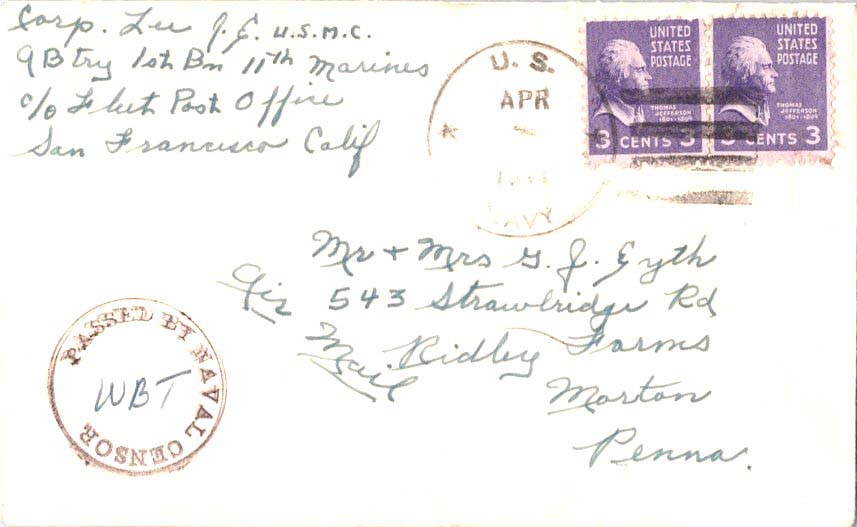 Corp. Lee J. E. U.S.M.C.
Btry 1st Bn 11th Marines
c/o Fleet Post Office
San Francisco Calif
U.S.
APR
NAVY
UNITED
STATES
POSTAGE
THOMAS
JEFFERSON
1801-1809
3 CENTS 3
UNITED
STATES
POSTAGE
THOMAS
JEFFERSON
1801-1809
3 CENTS 3
Mr + Mrs G. J. Eyth
543 Strawbridge Rd
Ridley Farms
Morton
Penna.
Air
Mail
PASSED BY NAVAL CENSOR
WBT